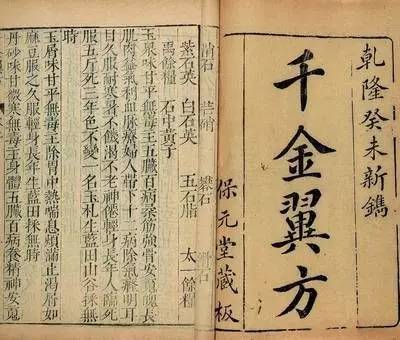 乾隆癸未新鐫
千金翼方
保元堂藏板
消石 芒硝 礬石 滑石
紫石英 白石英 五石脂 太一餘糧
禹餘糧 石中黄子
玉泉味甘平無毒主五臟百病柔筋強骨安魂魄長
肌肉益氣利血脉療婦人帶下十二病除氣癃明耳
目久服耐寒暑不饑渴不老神僊輕身長年人臨死
服五斤死三年色不變一名玉札生藍田山谷採無
時
玉屑味甘平無毒主除胃中熱喘息煩滿止渴屑如
麻豆服之久服輕身長年生藍田採無時
丹砂味甘微寒無毒主身體五臟百病養精神安䰟